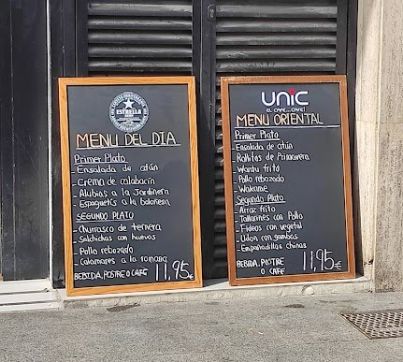 ESTRELLA
MENU DEL DIA
Primer Plato
- Ensalada de atún
- Crema de calabacín
- Alubias a la Jardinera
- Espaguetis a la boloñesa
SEGUNDO PLATO
- Churrasco de ternera
- Salchichas con huevos
- Pollo rebozado
- Calamares a la romana
BEBIDA, POSTRE O CAFÉ 11,95€
UNiC
EL CAFÉ...CAFÉ!
MENU ORIENTAL
Primer Plato
- Ensalada de atún
- Rollitos de Primavera
- Wantu frito
- Pollo rebozado
- Wakame
Segundo Plato
- Arroz frito
- Tallarines con Pollo
- Fideos con vegetal
- Udon con gambas
- Empanadillas chinas
BEBIDA, POSTRE
O CAFÉ 11,95€